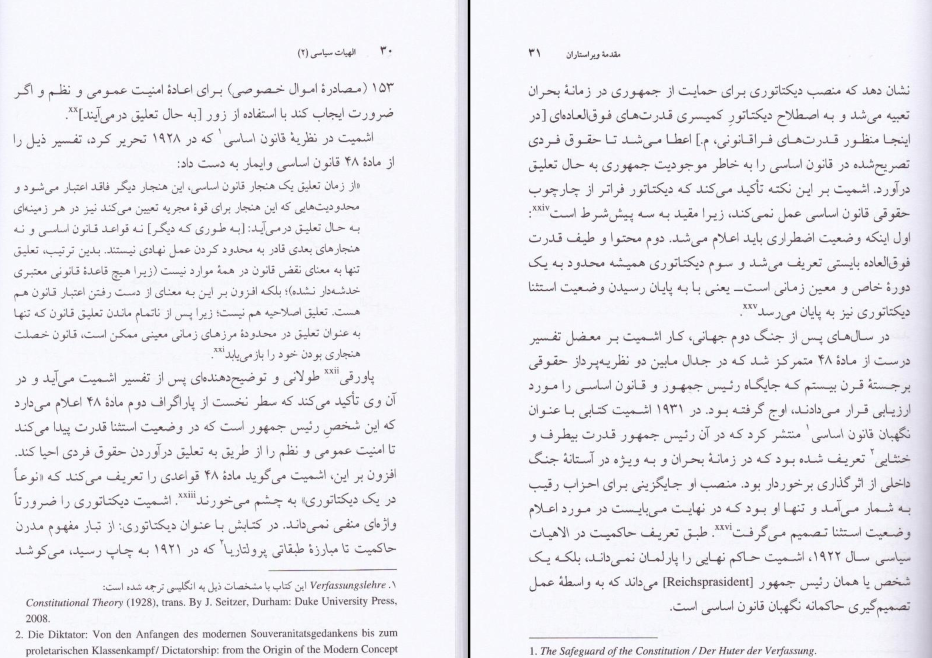 ۳۰ الهیات سیاسی (۲)
۱۵۳ (مصادرهٔ اموال خصوصی) برای اعادهٔ امنیت عمومی و نظم و اگر
ضرورت ایجاب کند با استفاده از زور [به حال تعلیق درمی‌آیند]xx.
اشمیت در نظریهٔ قانون اساسی۱ که در ۱۹۲۸ تحریر کرد، تفسیر ذیل را
از مادهٔ ۴۸ قانون اساسی وایمار به دست داد:
«از زمان تعلیق یک هنجار قانون اساسی، این هنجار دیگر فاقد اعتبار می‌شود و
محدودیت‌هایی که این هنجار برای قوهٔ مجریه تعیین می‌کند نیز در هر زمینه‌ای
به حال تعلیق درمی‌آید: [به طوری که دیگر] نه قواعد قانون اساسی و نه
هنجارهای بعدی قادر به محدود کردن عمل نهادی نیستند. بدین ترتیب، تعلیق
تنها به معنای نقض قانون در همهٔ موارد نیست (زیرا هیچ قاعدهٔ قانونی معتبری
خدشه‌دار نشده)؛ بلکه افزون بر این به معنای از دست رفتن اعتبار قانون هم
هست. تعلیق اصلاحیه هم نیست؛ زیرا پس از ناتمام ماندن تعلیق قانون که تنها
به عنوان تعلیق در محدودهٔ مرزهای زمانی معینی ممکن است، قانون خصلت
هنجاری بودن خود را بازمی‌یابد»xxi.
پاورقی xxii طولانی و توضیح‌دهنده‌ای پس از تفسیر اشمیت می‌آید و در
آن وی تأکید می‌کند که سطر نخست از پاراگراف دوم مادهٔ ۴۸ اعلام می‌دارد
که این شخصِ رئیس جمهور است که در وضعیت استثنا قدرت پیدا می‌کند
تا امنیت عمومی و نظم را از طریق به تعلیق درآوردن حقوق فردی احیا کند.
افزون بر این، اشمیت می‌گوید مادهٔ ۴۸ قواعدی را تعریف می‌کند که «نوعاً
در یک دیکتاتوری» به چشم می‌خورند xxiii. اشمیت دیکتاتوری را ضرورتاً
واژه‌ای منفی نمی‌داند. در کتابش با عنوان دیکتاتوری: از تبار مفهوم مدرن
حاکمیت تا مبارزهٔ طبقاتی پرولتاریا۲ که در ۱۹۲۱ به چاپ رسید، می‌کوشد
۱. Verfassungslehre این کتاب با مشخصات ذیل به انگلیسی ترجمه شده است:
Constitutional Theory (1928), trans. By J. Seitzer, Durham: Duke University Press,
2008.
2. Die Diktator: Von den Anfangen des modernen Souveranitatsgedankens bis zum
proletarischen Klassenkampf/ Dictatorship: from the Origin of the Modern Concept
مقدمهٔ ویراستاران ۳۱
نشان دهد که منصب دیکتاتوری برای حمایت از جمهوری در زمانهٔ بحران
تعبیه می‌شد و به اصطلاح دیکتاتورِ کمیسری قدرت‌های فوق‌العاده‌ای [در
اینجا منظور قدرت‌های فراقانونی، م.] اعطا می‌شد تا حقوق فردی
تصریح‌شده در قانون اساسی را به خاطر موجودیت جمهوری به حال تعلیق
درآورد. اشمیت بر این نکته تأکید می‌کند که دیکتاتور فراتر از چارچوب
حقوقی قانون اساسی عمل نمی‌کند، زیرا مقید به سه پیش‌شرط است xxiv:
اول اینکه وضعیت اضطراری باید اعلام می‌شد. دوم محتوا و طیف قدرت
فوق‌العاده بایستی تعریف می‌شد و سوم دیکتاتوری همیشه محدود به یک
دورهٔ خاص و معین زمانی است_ یعنی با به پایان رسیدن وضعیت استثنا
دیکتاتوری نیز به پایان می‌رسد xxv.
در سال‌های پس از جنگ دوم جهانی، کار اشمیت بر معضل تفسیر
درست از مادهٔ ۴۸ متمرکز شد که در جدال مابین دو نظریه‌پرداز حقوقی
برجستهٔ قرن بیستم که جایگاه رئیس جمهور و قانون اساسی را مورد
ارزیابی قرار می‌دادند، اوج گرفته بود. در ۱۹۳۱ اشمیت کتابی با عنوان
نگهبان قانون اساسی۱ منتشر کرد که در آن رئیس جمهور قدرت بیطرف و
خنثایی۲ تعریف شده بود که در زمانهٔ بحران و به ویژه در آستانهٔ جنگ
داخلی از اثرگذاری برخوردار بود. منصب او جایگزینی برای احزاب رقیب
به شمار می‌آمد و تنها او بود که در نهایت می‌بایست در مورد اعلام
وضعیت استثنا تصمیم می‌گرفت xxvi. طبق تعریف حاکمیت در الاهیات
سیاسی سال ۱۹۲۲، اشمیت حاکم نهایی را پارلمان نمی‌داند، بلکه یک
شخص یا همان رئیس جمهور [Reichsprasident] می‌داند که به واسطهٔ عمل
تصمیم‌گیری حاکمانه نگهبان قانون اساسی است.
1. The Safeguard of the Constitution / Der Huter der Verfassung.